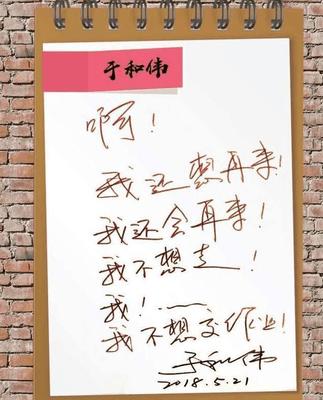 于和伟
啊！
我还想再来！
我还会再来！
我不想走！
我！……
我不想交作业！
于和伟
2018.5.21